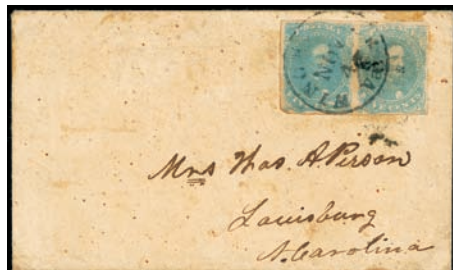 Mrs Thos. A. Person
Louisburg
N. Carolina